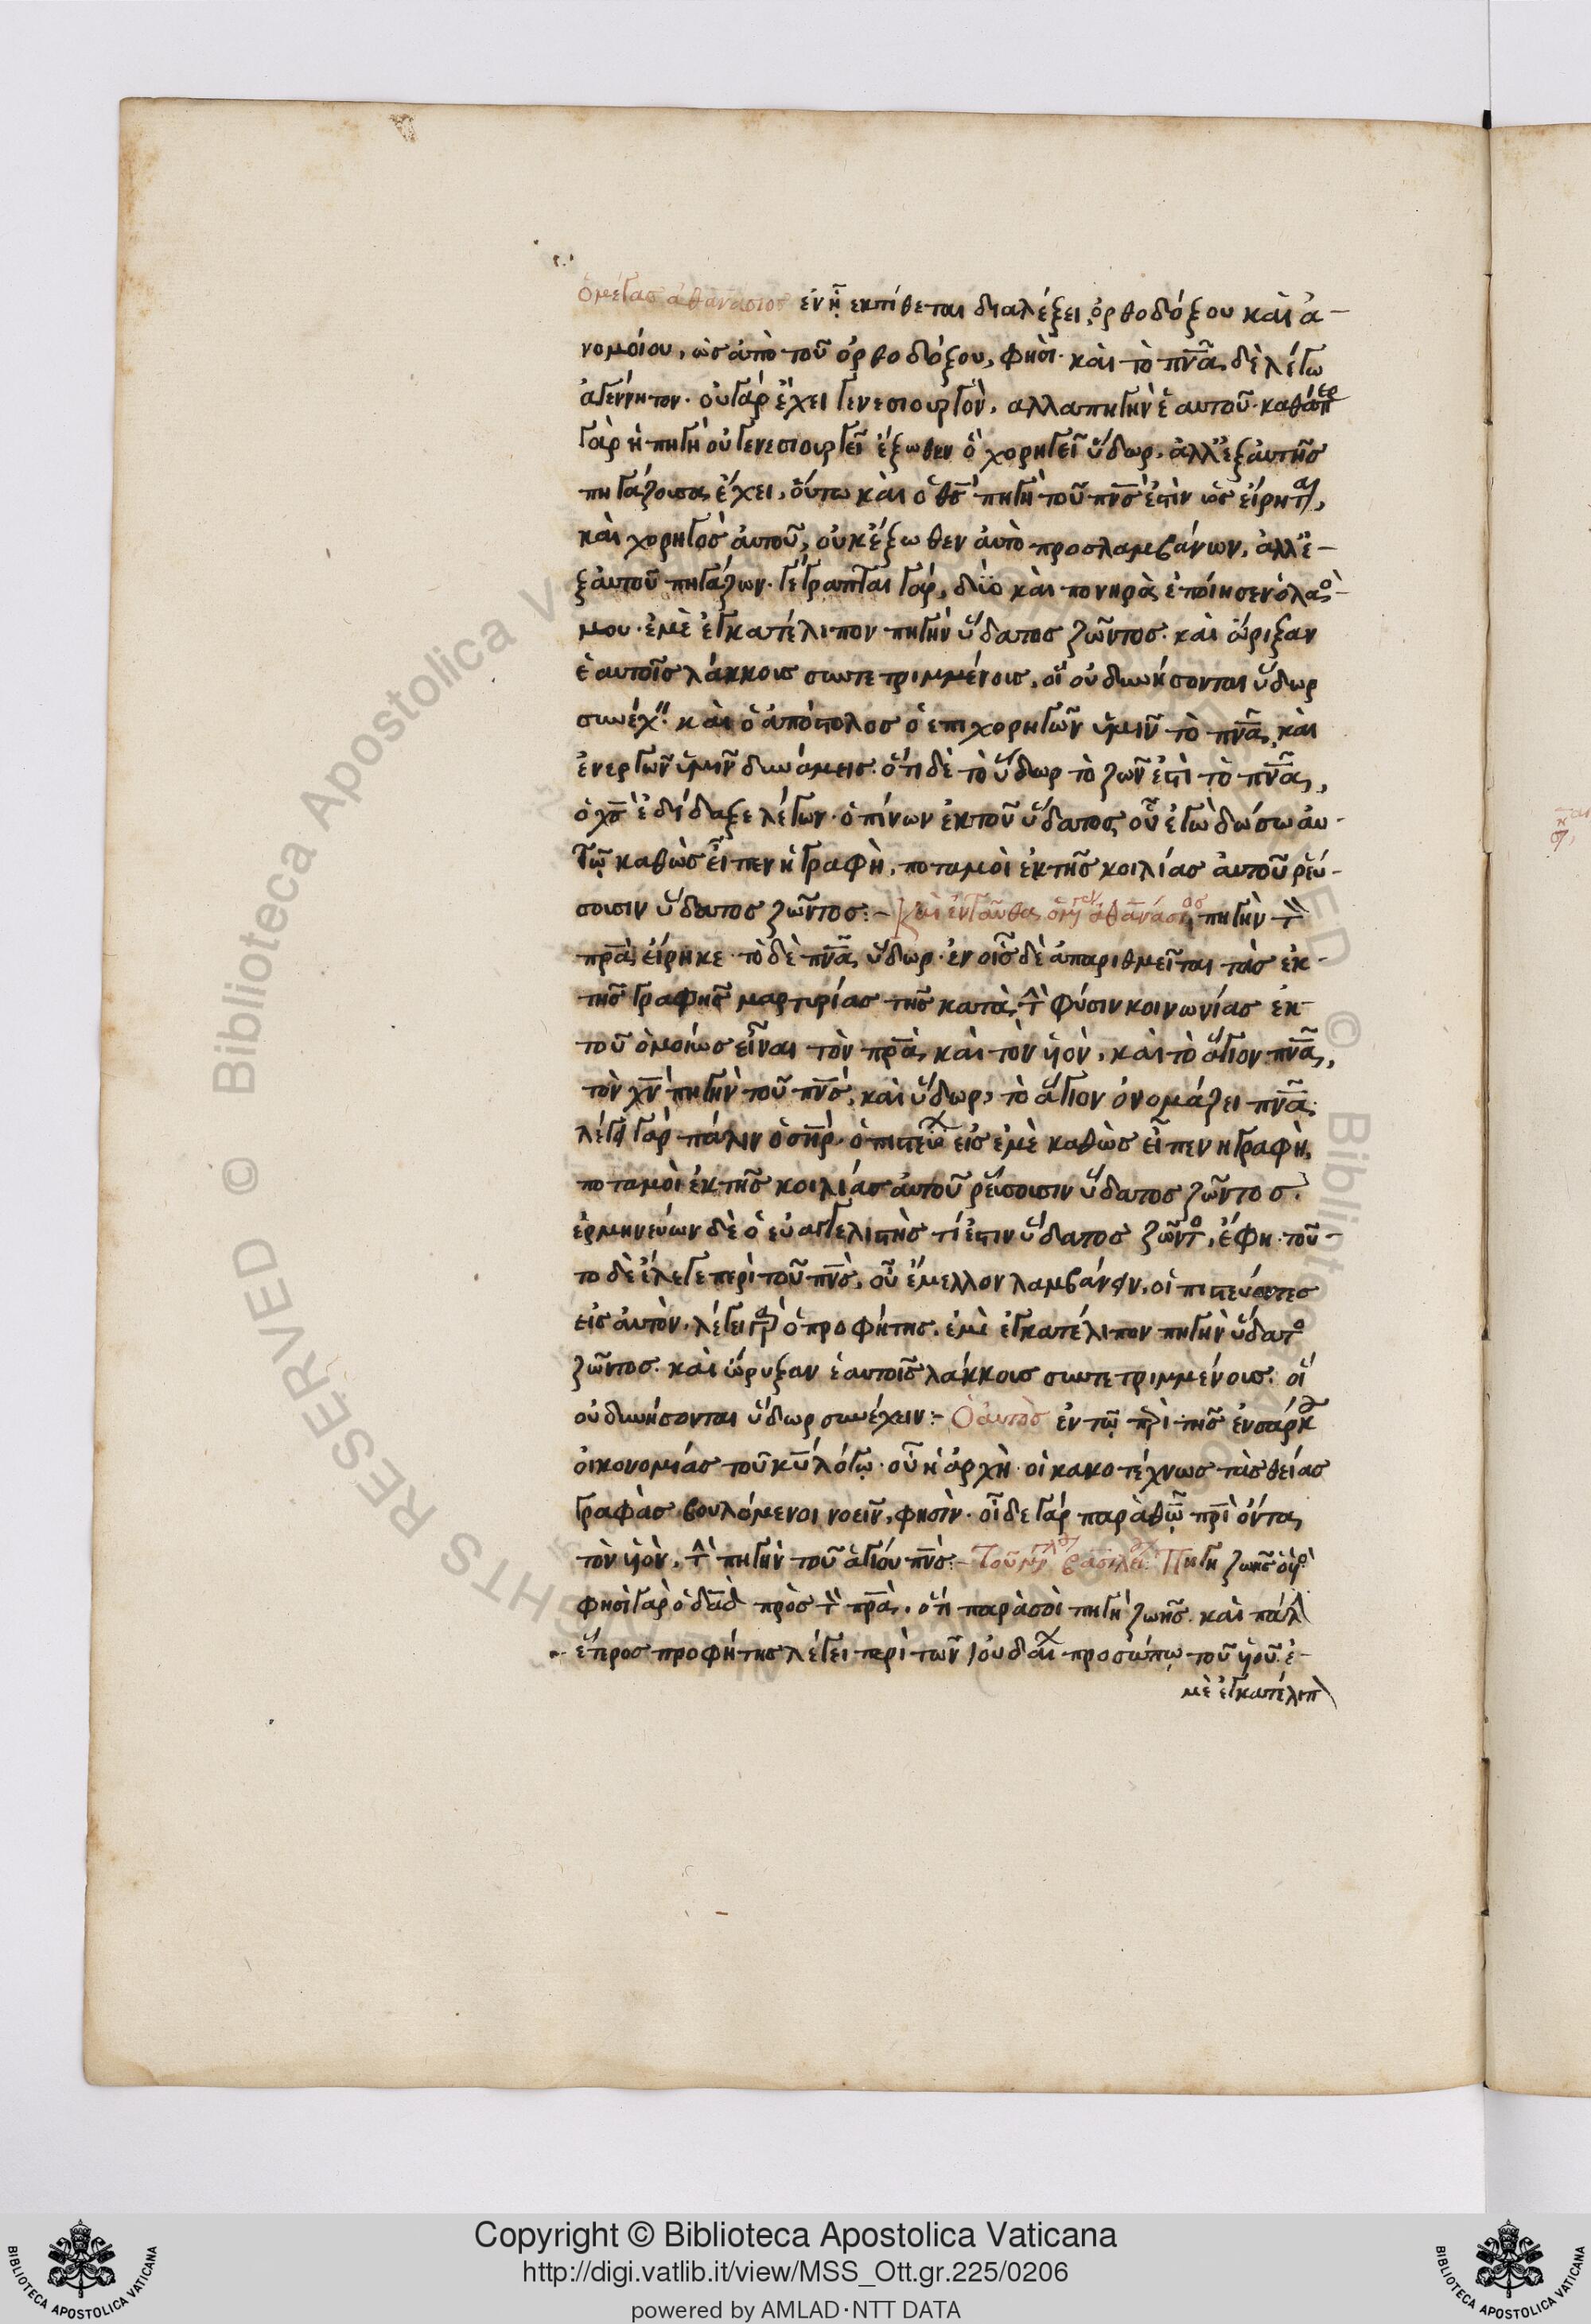 ὁ μέγας ἀθανάσιος ἐν ᾗ ἐκτίθεται διαλέξει ὀρθοδόξου καὶ ἀ-
νομοίου, ὡς ἀπὸ τοῦ ὀρθοδόξου, φησὶ· καὶ τὸ πν̅α̅ δὲ λέγω
ἀγέννητον· οὐ γὰρ ἔχει γενεσιουργὸν, αλλα πηγὴν ἑαυτοῦ· καθάπερ
γὰρ ἡ πηγὴ οὐ γενεσιουργεῖ ἔξωθεν ὃ χορηγεῖ ὕδωρ, ἀλλ' ἐξ αὐτῆς
πηγάζουσα ἔχει, οὕτω καὶ ὁ θς̅ πηγὴ τοῦ πν̅ς̅ ἐστὶν ὡς εἴρηται,
καὶ χορηγὸς αὐτοῦ, οὐκ ἔξωθεν ἀυτὸ προσλαμβάνων, ἀλλ' ἐ-
ξ αὐτοῦ πηγάζων· γέγραπται γάρ, δύο καὶ πονηρὰ ἐποίησεν ὁ λαὸς
μου· ἐμὲ ἐγκατέλιπον πηγὴν ὕδατος ζῶντος· καὶ ὤριξαν
ἑαυτοῖς λάκκους συντετριμμένους, οἳ οὐ δυνήσονται ὕδωρ
συνέχειν· καὶ ὁ ἀπόστολος ὁ επιχορηγῶν ὑμῖν τὸ πν̅α̅, καὶ
ἐνεργῶν ὑμῖν δυνάμεις· ὅτι δὲ τὸ ὕδωρ τὸ ζῶν ἐστὶ τὸ πν̅α̅,
ὁ χς̅ ἐδίδαξε λέγων· ὁ πίνων ἐκ τοῦ ὕδατος οὗ ἐγὼ δώσω ἀυ-
τῷ καθὼς εἶπεν ἡ γραφὴ, ποταμοὶ ἐκ τῆς κοιλίας ἀυτοῦ ῥεύ-
σουσιν ὕδατος ζῶντος:- Καὶ ἐνταῦθα ὁ μέγας ἀθανάσιος πηγὴν τὸν
πρ̅α̅ εἴρηκε· τὸ δὲ πν̅α̅ ὕδωρ· ἐν οἷς δὲ ἀπαριθμεῖται τὰς ἐκ
τῆς γραφῆς μαρτυρίας τῆς κατὰ τὴν φύσιν κοινωνίας ἐκ
τοῦ ὁμοίως εἶναι τὸν πρ̅α̅ καὶ τὸν υἱὸν, καὶ τὸ ἅγιον πν̅α̅,
τὸν χν̅ πηγὴν τοῦ πν̅ς̅, καὶ ὕδωρ, τὸ ἅγιον ὀνομάζει πν̅α̅·
λέγει γὰρ πάλιν ὁ σ̅η̅ρ̅· ὁ πιστεύων εἰς ἐμὲ καθὼς εἶπεν η γραφὴ,
ποταμοὶ ἐκ τῆς κοιλίας ἀυτοῦ ῥεύσουσιν ὕδατος ζῶντος·
ἑρμηνεύων δὲ ὁ εὐαγγελιστὴς τί ἐστιν ὕδατος ζῶντος, ἔφη· τοῦ-
το δὲ ἔλεγε περὶ τοῦ πν̅ς̅, οὗ ἔμελλον λαμβάνειν, οἱ πιστεύοντες
εἰς ἀυτὸν· λέγει γὰρ ὁ προφήτης· ἐμὲ ἐγκατέλιπον πηγὴν ὕδατος
ζῶντος· καὶ ὤρυξαν ἑαυτοῖς λάκκους συντετριμμένους· οἳ
οὐ δυνήσονται ὕδωρ συνέχειν:- Ὁ αυτὸς ἐν τῷ περὶ τῆς ἐνσάρκου
οἰκονομίας τοῦ κυ̅ λόγῳ· οὗ ἡ ἀρχὴ· οἱ κακοτέχνως τὰς θείας
γραφὰς βουλόμενοι νοεῖν, φησὶν· οἶδε γὰρ παρὰ θῶ̅ πρ̅ὶ ὄντα
τὸν υἱὸν, τὴν πηγὴν τοῦ ἁγίου πν̅ς̅:- Τοῦ μεγάλου βασιλείου Πηγη ζωῆς ὁ υἱὸς
φησὶ γὰρ ὁ δα̅δ̅ πρὸς τὸν πρ̅α̅, ὅτι παρὰ σοὶ πηγὴ ζωῆς· καὶ πάλιν
ἕτερος προφήτης λέγει περὶ τῶν ἰουδαίων προσώπῳ τοῦ υἱοῦ· ἐ-
μὲ ἐγκατέλιπον
Copyright © Biblioteca Apostolica Vaticana
http://digi.vatlib.it/view/MSS_Ott.gr.225/0206
powered by AMLAD·NTT DATA